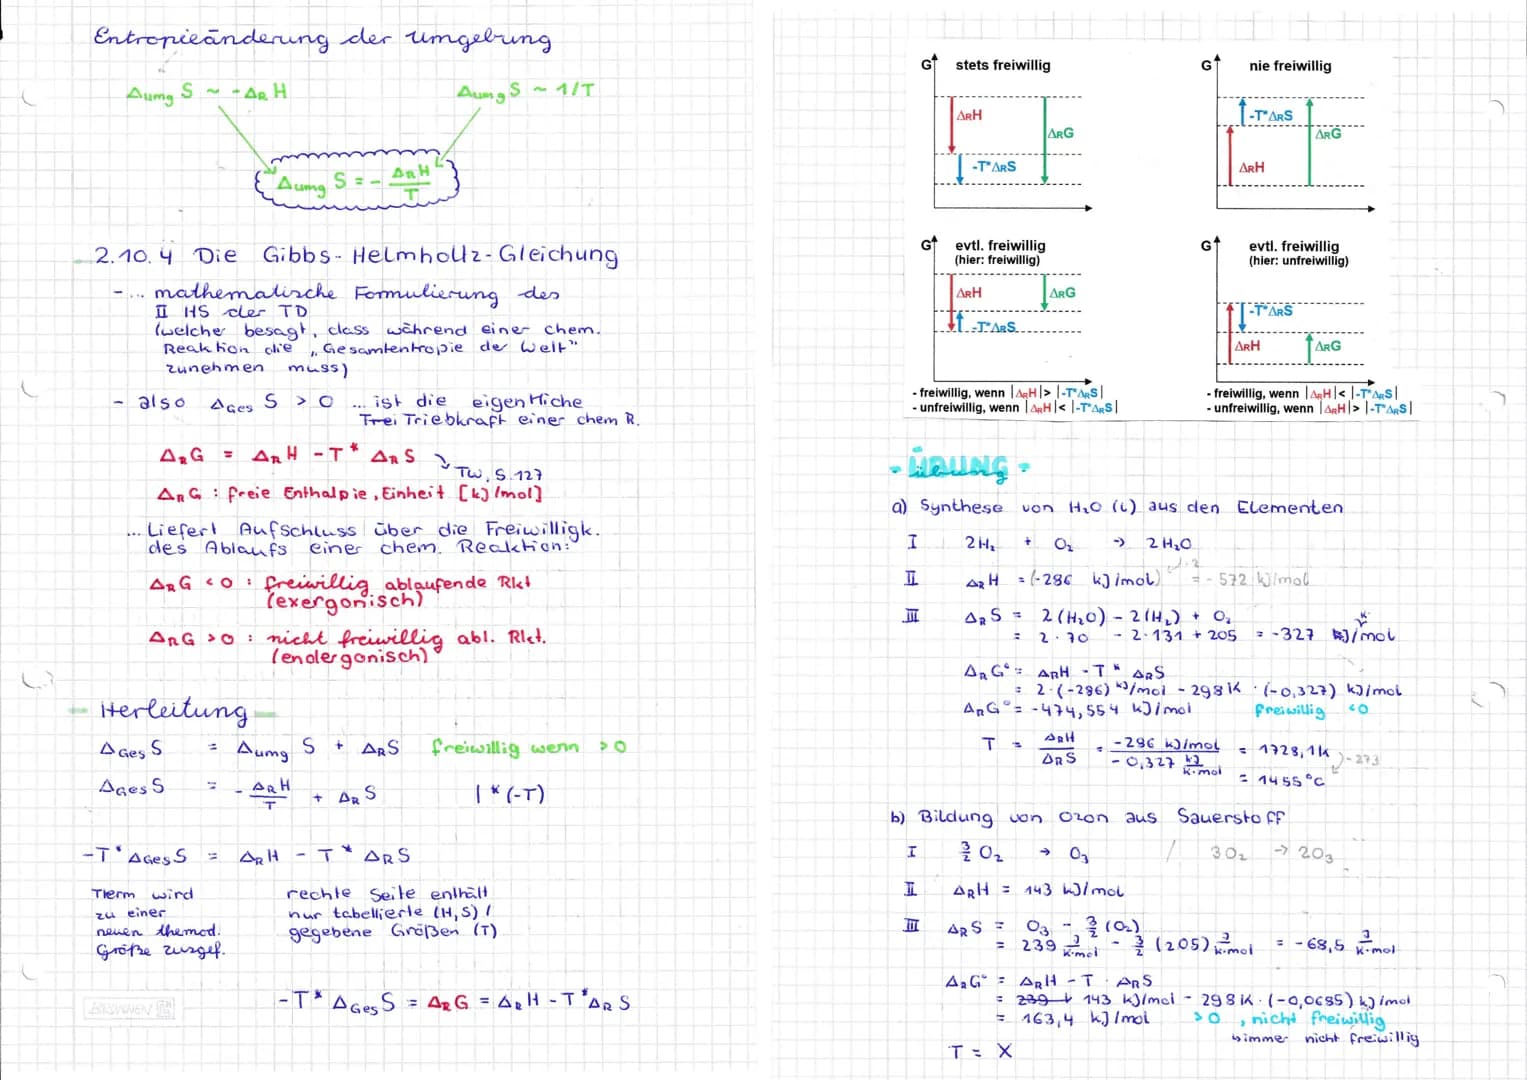 Entropieänderung der Umgebung
Δumg S ~ -ΔR H
Δumg S ~ 1/T
Δumg S = - ΔRH / T
2.10.4 Die Gibbs-Helmholtz-Gleichung
-... mathematische Formulierung des
II HS der TD
(welcher besagt, dass während einer chem.
Reaktion die „Gesamtentropie der Welt"
zunehmen muss)
- also ΔGes S > 0 ... ist die eigentliche
Trei Triebkraft einer chem R.
ΔRG = ΔRH - T * ΔRS
TW, S. 127
ΔRG : freie Enthalpie, Einheit [kJ/mol]
... Liefert Aufschluss über die Freiwilligk.
des Ablaufs einer chem. Reaktion:
ΔRG < 0 : freiwillig ablaufende Rkt
(exergonisch)
ΔRG > 0 : nicht freiwillig abl. Rkt.
(endergonisch)
- Herleitung -
ΔGes S = Δumg S + ΔRS freiwillig wenn > 0
ΔGes S = - ΔRH / T + ΔR S | * (-T)
-T * ΔGes S = ΔRH - T * ΔRS
Term wird
zu einer
neuen themod.
Größe zusgef.
rechte Seite enthält
nur tabellierte (H,S) /
gegebene Größen (T)
-T * ΔGes S = ΔRG = ΔRH - T * ΔRS
G stets freiwillig
ΔRH
ΔRG
-T*ΔRS
G nie freiwillig
-T*ΔRS
ΔRG
ΔRH
G evtl. freiwillig
(hier: freiwillig)
ΔRH
ΔRG
-T*ΔRS
- freiwillig, wenn |ΔRH| > |-T*ΔRS|
- unfreiwillig, wenn |ΔRH| < |-T*ΔRS|
G evtl. freiwillig
(hier: unfreiwillig)
-T*ΔRS
ΔRH
ΔRG
- freiwillig, wenn |ΔRH| < |-T*ΔRS|
- unfreiwillig, wenn |ΔRH| > |-T*ΔRS|
- ÜBUNG -
übung
a) Synthese von H₂O (l) aus den Elementen
I 2H₂ + O₂ → 2H₂O
II ΔRH = (-286 kJ/mol) ·2 = -572 kJ/mol
III ΔRS = 2(H₂O) - 2(H₂) + O₂
= 2·70 - 2·131 + 205 = -327 J/K mol
ΔRG° = ΔRH - T * ΔRS
= 2·(-286) kJ/mol - 298 K · (-0,327) kJ/mol
ΔRG° = -474,554 kJ/mol freiwillig < 0
T = ΔRH / ΔRS = -286 kJ/mol / -0,327 kJ/K·mol = 1728,1K
-273
= 1455°C
b) Bildung von Ozon aus Sauerstoff
I 3/2 O₂ → O₃ / 3O₂ → 2O₃
II ΔRH = 143 kJ/mol
III ΔRS = O₃ - 3/2 (O₂)
= 239 J/K·mol - 3/2 (205) J/K·mol = -68,5 J/K·mol
ΔRG° = ΔRH - T · ΔRS
= 239 + 143 kJ/mol - 298 K · (-0,0685) kJ/mol
= 163,4 kJ/mol > 0, nicht freiwillig
↳ immer nicht freiwillig
T = X